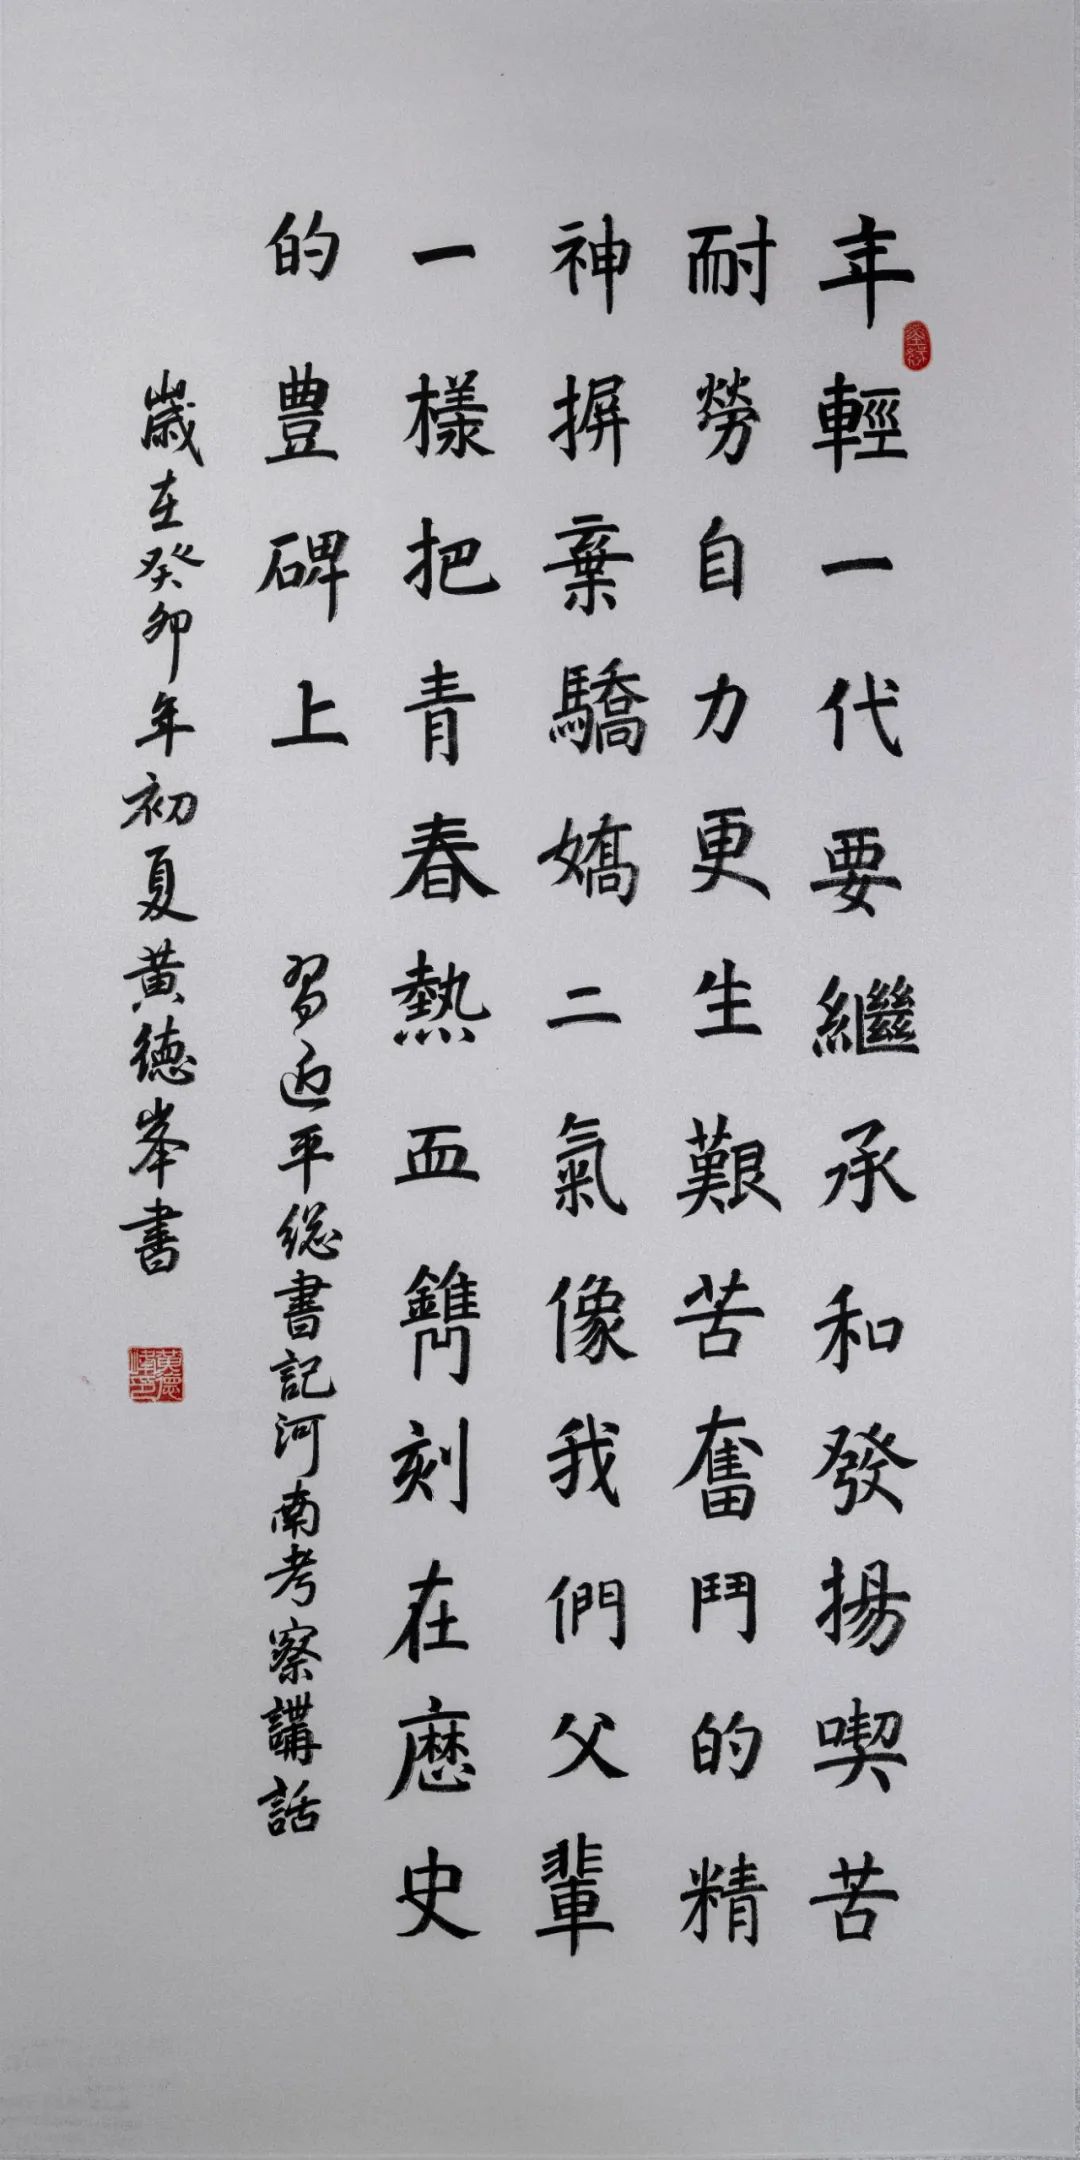 年輕一代要繼承和發揚喫苦
耐勞自力更生艱苦奮鬥的精
神摒棄驕嬌二氣像我們父輩
一樣把青春熱血鐫刻在歷史
的豐碑上
習近平総書記河南考察講話
歲在癸卯年初夏黄德峯書